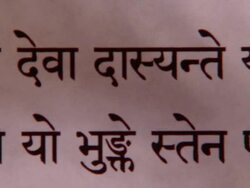 देवा दास्यन्ते
यो भुङ्क्ते स्तेन